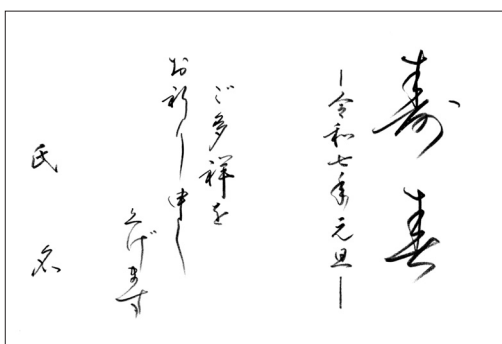 寿春
―令和七年元旦―
ご多祥を
お祈り申し
上げます
氏名